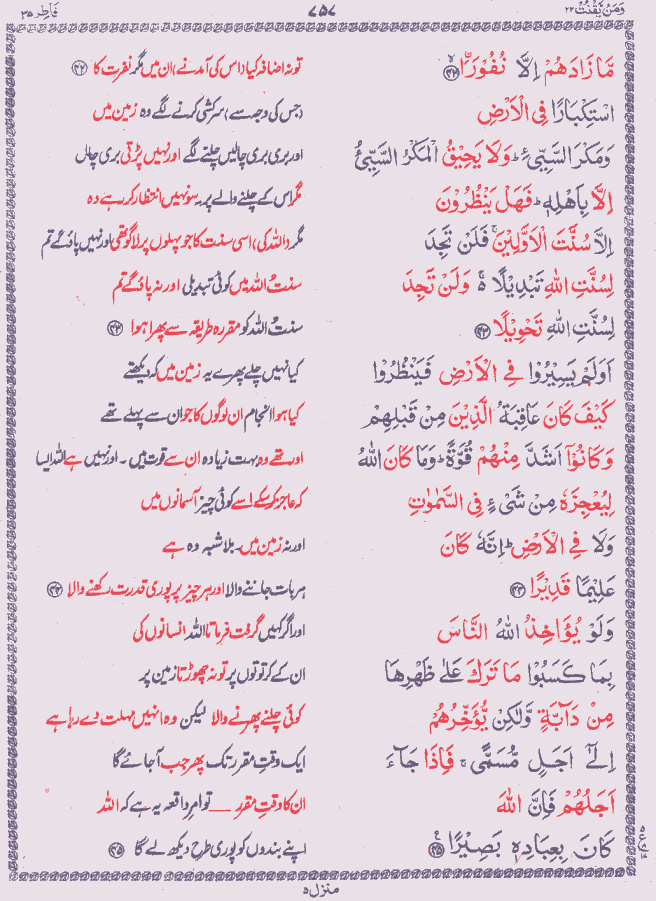 وَمَنْ يَّقْنُتْ ٢٢ ٧٥٧ فَاطِر ٣٥
مَّا زَادَهُمْ اِلَّا نُفُوْرَاۙ ﴿٤٢﴾ تو نہ اضافہ کیا (اس کی آمد نے) ان میں مگر نفرت کا ﴿٤٢﴾
اسْتِكْبَارًا فِى الْاَرْضِ (جس کی وجہ سے) سرکشی کرنے لگے وہ زمین میں
وَمَكْرَ السَّيِّئِ ؕ وَلَا يَحِيْقُ الْمَكْرُ السَّيِّئُ اور بری بری چالیں چلنے لگے اور نہیں پڑتی بری چال
اِلَّا بِاَهْلِهٖ ؕ فَهَلْ يَنْظُرُوْنَ مگر اس کے چلنے والے پر۔ سو نہیں انتظار کر رہے وہ
اِلَّا سُنَّتَ الْاَوَّلِيْنَ ۚ فَلَنْ تَجِدَ مگر (اللہ کی) اسی سنت کا جو پہلوں پر لاگو تھی اور نہیں پاؤ گے تم
لِسُنَّتِ اللّٰهِ تَبْدِيْلًا ۚ۬ وَلَنْ تَجِدَ سنت اللہ میں کوئی تبدیلی اور نہ پاؤ گے تم
لِسُنَّتِ اللّٰهِ تَحْوِيْلًا ﴿٤٣﴾ سنت اللہ کو مقررہ طریقہ سے پھرا ہوا ﴿٤٣﴾
اَوَلَمْ يَسِيْرُوْا فِى الْاَرْضِ فَيَنْظُرُوْا کیا نہیں چلے پھرے یہ زمین میں کہ دیکھتے
كَيْفَ كَانَ عَاقِبَةُ الَّذِيْنَ مِنْ قَبْلِهِمْ کیا ہوا انجام ان لوگوں کا جو ان سے پہلے تھے
وَكَانُوْۤا اَشَدَّ مِنْهُمْ قُوَّةً ؕ وَمَا كَانَ اللّٰهُ اور تھے وہ بہت زیادہ ان سے قوت میں۔ اور نہیں ہے اللہ ایسا
لِيُعْجِزَهٗ مِنْ شَىْءٍ فِى السَّمٰوٰتِ کہ عاجز کر سکے اسے کوئی چیز آسمانوں میں
وَلَا فِى الْاَرْضِ ؕ اِنَّهٗ كَانَ اور نہ زمین میں۔ بلاشبہ وہ ہے
عَلِيْمًا قَدِيْرًا ﴿٤٤﴾ ہر بات جاننے والا اور ہر چیز پر پوری قدرت رکھنے والا ﴿٤٤﴾
وَلَوْ يُؤَاخِذُ اللّٰهُ النَّاسَ اور اگر کہیں گرفت فرماتا اللہ انسانوں کی
بِمَا كَسَبُوْا مَا تَرَكَ عَلٰى ظَهْرِهَا ان کے کرتوتوں پر تو نہ چھوڑتا زمین پر
مِنْ دَآبَّةٍ وَّلٰكِنْ يُّؤَخِّرُهُمْ کوئی چلنے پھرنے والا لیکن وہ انہیں مہلت دے رہا ہے
اِلٰٓى اَجَلٍ مُّسَمًّى ۚ فَاِذَا جَآءَ ایک وقت مقرر تک پھر جب آ جائے گا
اَجَلُهُمْ فَاِنَّ اللّٰهَ ان کا وقتِ مقرر ــــ تو امرِ واقعہ یہ ہے کہ اللہ
كَانَ بِعِبَادِهٖ بَصِيْرًا ﴿٤٥﴾ اپنے بندوں کو پوری طرح دیکھ لے گا ﴿٤٥﴾
منزل ۵